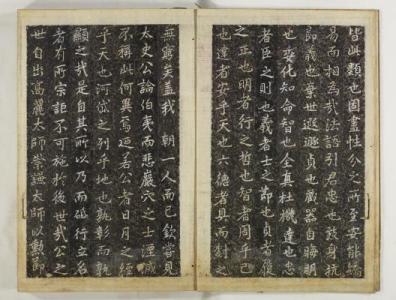 皆此類也因盡性分之所至安能矯
易而相為哉法語引君忠也致身抗
節義也棄世遯貞也藏器自晦明
也變化知命智也全真杜機達也忠
者臣之則也義者士之節也貞者履
之正也明者行之哲也智者周乎己
也達者安乎天也六德者具而對之
無窮矣盖我 朝一人而已欽嘗見
太史公論伯夷而悲巖穴之士湮滅
不稱此何異焉迺若公者日月之經
乎天也河嶽之列乎地也孰彰而孰
顯之哉是自其所以乃而砥行立名
者有所宗詎不可施於後世哉公之
世自出太師崇謙太師以勳節